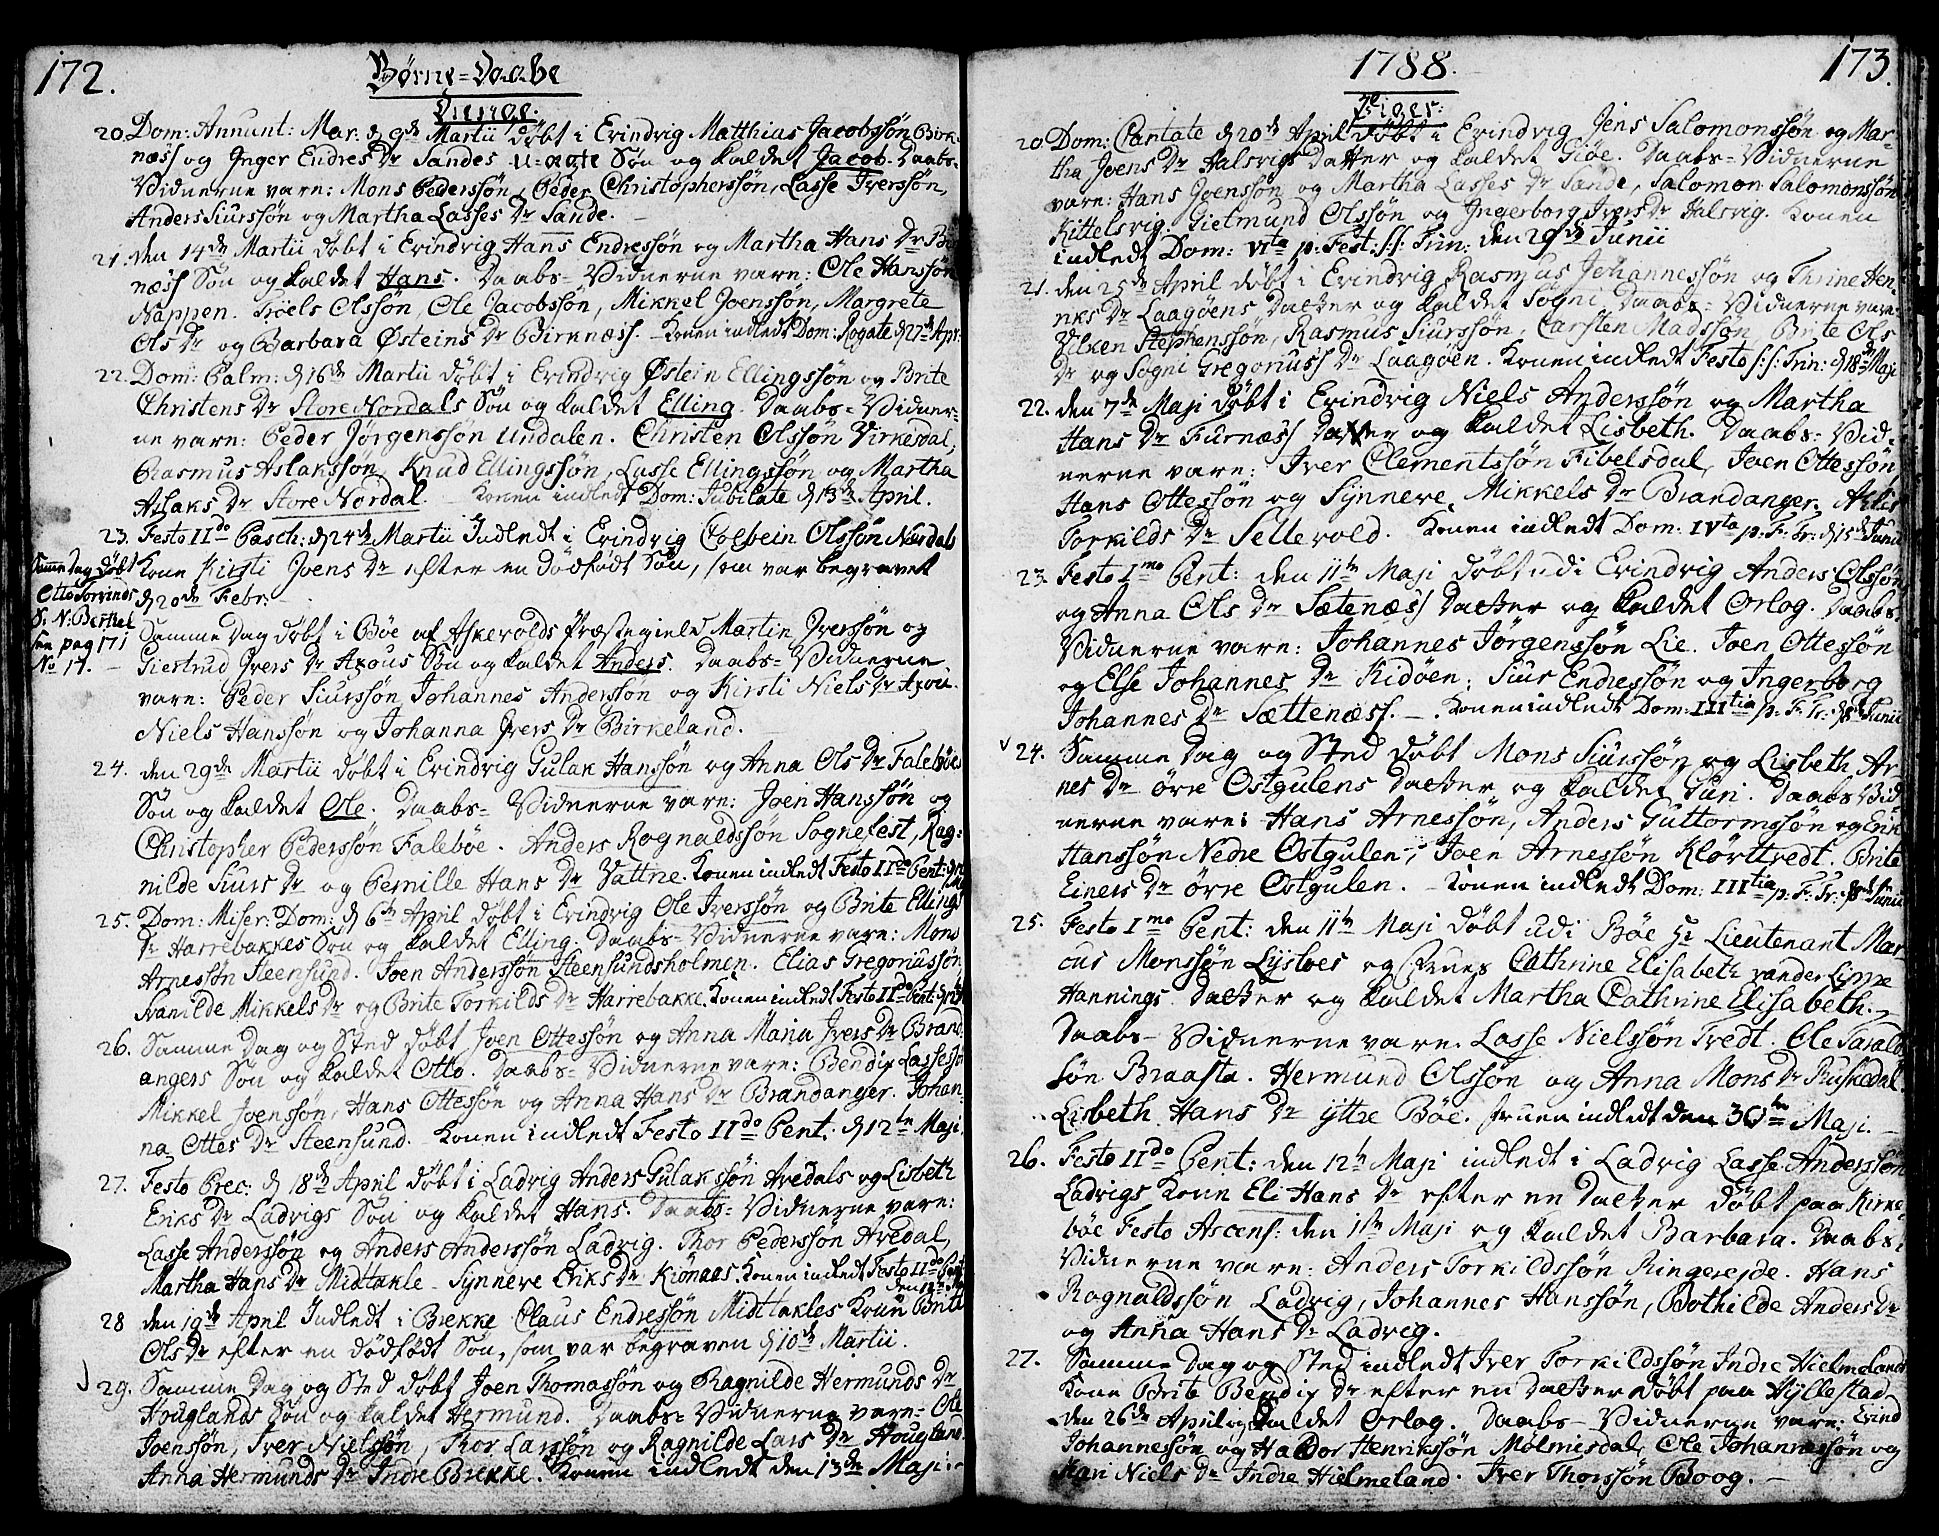 172.
Børne-Daabe
Drenge.
20. Dom: Annunt: Mar: d 9de Martii døbt i Evindvig Matthias Jacobssøn Birk-
næss og Inger Endres Dr Sandes u-ægte Søn og kaldet Jacob. Daabs-
Vidnerne vare: Mons Pederssøn, Peder Christopherssøn, Lasse Iverssøn,
Anders Siurssøn og Martha Lasses Dr Sande.
21. den 14de Martii døbt i Evindvig Hans Endressøn og Martha Hans Dr
næss Søn og kaldet Hans. Daabs-Vidnerne vare: Ole Hanssøn
Nappen. Troels Olssøn, Ole Jacobssøn, Mikkel Joenssøn, Margrete
Ols Dr og Barbara Østeins Dr Birknæss. Konen indledt Dom: Rogate d 27de Apr:
22. Dom: Palm: d 16de Martii døbt i Evindvig Østein Ellingssøn og Brite
Christens Dr Store Nordals Søn og kaldet Elling. Daabs-Vidner-
ne vare: Peder Jørgenssøn Undalen. Christen Olssøn Virkesdal,
Rasmus Aslakssøn, Knud Ellingssøn, Lasse Ellingssøn og Martha
Aslaks Dr Store Nordal. Konen indledt Dom: Jubilate d 13de April.
23. Festo IIdo Pasch: d 24de Martii Indledt i Evindvig Colbein Olssøn Nordals
Kone Kirsti Joens Dr efter en dødfødt Søn, som var begravet
d 20de Febr:
Samme Dag døbt
Otto Torvinds
S. N: Berkel
see pag 171
No 17.
Samme Dag døbt i Bøe af Askevolds Præstegield Martin Iverssøn og
Giertrud Ivers Dr Axous Søn og kaldet Anders. Daabs-Vidnerne
vare: Peder Siurssøn, Johannes Anderssøn og Kirsti Niels Dr Axou.
Niels Hanssøn og Johanna Ivers Dr Birkeland.
24. den 29de Martii døbt i Evindvig Gulak Hanssøn og Anna Ols Dr Falebøes
Søn og kaldet Ole. Daabs-Vidnerne vare: Joen Hanssøn og
Christopher Pederssøn Falebøe. Anders Rognaldssøn Sognefest, Rag-
nilde Siurs Dr og Pernille Hans Dr Vattne. Konen indledt Festo IIdo Pent:
25. Dom: Miser: Dom: d 6te April døbt i Evindvig Ole Iverssøn og Brite Ellings
Dr Harrebakkes Søn og kaldet Elling. Daabs-Vidnerne vare: Mons
Arnessøn Steensund. Joen Anderssøn Steensundsholmen. Elias Gregoriussøn
Svanilde Mikkels Dr og Brite Torkilds Dr Harrebakke. Konen indledt Festo IIdo Pent:
26. Samme Dag og Sted døbt Joen Ottessøn og Anna Maria Ivers Dr Brand-
angers Søn og kaldet Otto. Daabs-Vidnerne vare: Bendix Lassessø
Mikkel Joenssøn, Hans Ottessøn og Anna Hans Dr Brandanger. Johan-
na Ottes Dr Steensund. Konen indledt Festo IIdo Pent: d 12te Maji.
27. Festo Prec: d 18de April døbt i Ladvig Anders Gulakssøn Avedals og Lisbeth
Eriks Dr Ladvigs Søn og kaldet Hans. Daabs-Vidnerne vare:
Lasse Anderssøn og Anders Anderssøn Ladvig. Thor Pederssøn Avedal,
Martha Hans Dr Midtakle. Synneve Eriks Dr Kiønaas. Konen indledt Festo IIdo Pent:
28 den 19de April Indledt i Brekke Claus Endressøn Midttakles Kone Brite
Ols Dr efter en dødfødt Søn, som var begraven d 10de Martii.
29. Samme Dag og Sted døbt Joen Thomassøn og Ragnilde Hermunds Dr
Houglands Søn og kaldet Hermund. Daabs-Vidnerne vare: Ole
Joenssøn, Iver Nielssøn, Thor Larssøn og Ragnilde Lars Dr Hougland
Anna Hermunds Dr Indre Brekke. Konen indledt den 13de Maji.
1788.
173.
Piger:
20 Dom: Cantate d 20de April døbt i Evindvig Jens Salomonssøn og Mar-
tha Joens Dr Halsvigs Datter og kaldet Giøe. Daabs-Vidnerne
vare: Hans Joenssøn og Martha Lasses Dr Sande, Salomon Salomonssøn
Kittelsvig. Gietmund Olssøn og Ingerborg Ivers Dr Halsvig. Konen
indledt Dom: VIta p: Fest: S:S: Trin: den 29de Junii
21. den 25de April døbt i Evindvig Rasmus Johannessøn og Thrine Hen-
riks Dr Laagøens Datter og kaldet Sogni. Daabs-Vidnerne vare
Vilken Stephenssøn, Rasmus Siurssøn, Carsten Madssøn, Brite Ols
Dr og Sogni Gregoriuss Dr Laagøen. Konen indledt Festo S:S: Trin: d 18de Maji
22. den 7de Maji døbt i Evindvig Niels Anderssøn og Martha
Hans Dr Furnæss Datter og kaldet Lisbeth. Daabs-Vid-
nerne vare: Iver Clementssøn Fibelsdal, Joen Ottessøn,
Hans Ottessøn og Synneve Mikkels Dr Brandanger.
Torkilds Dr Sellevold. Konen indledt Dom: IVta p: F: Tr: d 15de Junii
23. Festo Imo Pent: den 11te Maji døbt udi Evindvig Anders Olssøn
og Anna Ols Dr Sætenæss Datter og kaldet Orlog. Daabs-
Vidnerne vare: Johannes Jørgenssøn Lie. Joen Ottessøn
og Else Johannes Dr Kidøen, Siur Endressøn og Ingerborg
Johannes Dr Sættenæss. Konen indledt Dom: IIItia p: F: Tr: d 8de Junii
24. Samme Dag og Sted døbt Mons Siurssøn og Lisbeth Ar-
nes Dr øvre Ostgulens Datter og kaldet Turi. Daabs-Vid-
nerne vare: Hans Arnessøn, Anders Guttormssøn og Erik
Hanssøn Nedre Ostgulen, Joen Arnessøn Kløvtvedt. Brite
Einers Dr øvre Ostgulen. Konen indledt Dom: IIItia p: F: Tr: d 8de Junii
25. Festo Imo Pent: den 11te Maji døbt udi Bøe Hr Lieutenant Mar-
cus Monssøn Lystoes og Frues Cathrine Elisabeth vander Lippe
Hannings Datter og kaldet Martha Cathrine Elisabeth.
Daabs-Vidnerne vare. Lasse Nielssøn Tredt. Ole Tarald-
søn Braasta. Hermund Olssøn og Anna Mons Dr Ruskedal
Lisbeth Hans Dr ytre Bøe. Fruen indledt den 30te Maji.
26. Festo IIdo Pent: den 12te Maji indledt i Ladvig Lasse Anderssøn
Ladvigs Kone Eli Hans Dr efter en Datter døbt paa Kirke-
bøe Festo Ascens: den 1ste Maji og kaldet Barbara. Daabs-
Vidnerne vare: Anders Torkildssøn Ringereide. Hans
Rognaldssøn Ladvig, Johannes Hanssøn, Bothilde Anders Dr
og Anna Hans Dr Ladvig.
27. Samme Dag og Sted indledt Iver Torkildssøn Indre Hielmelands
Kone Brite Bendix Dr efter en Datter døbt paa Hyllestad
den 26de April og kaldet Orlog. Daabs-Vidnerne vare: Evind
Johannessøn og Haldor Henrikssøn Mølmisdal, Ole Johannessøn og
Kari Niels Dr Indre Hielmeland. Iver Thorssøn Boog.